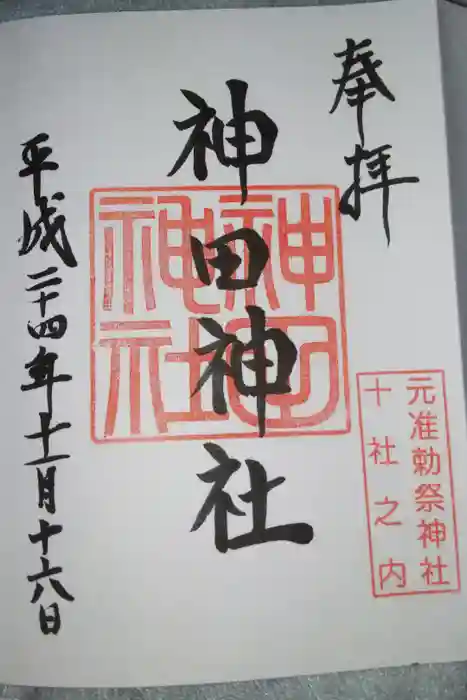 奉拝
元准勅祭神社
十社之内
神田神社
神田
神社
平成二十四年十一月十六日